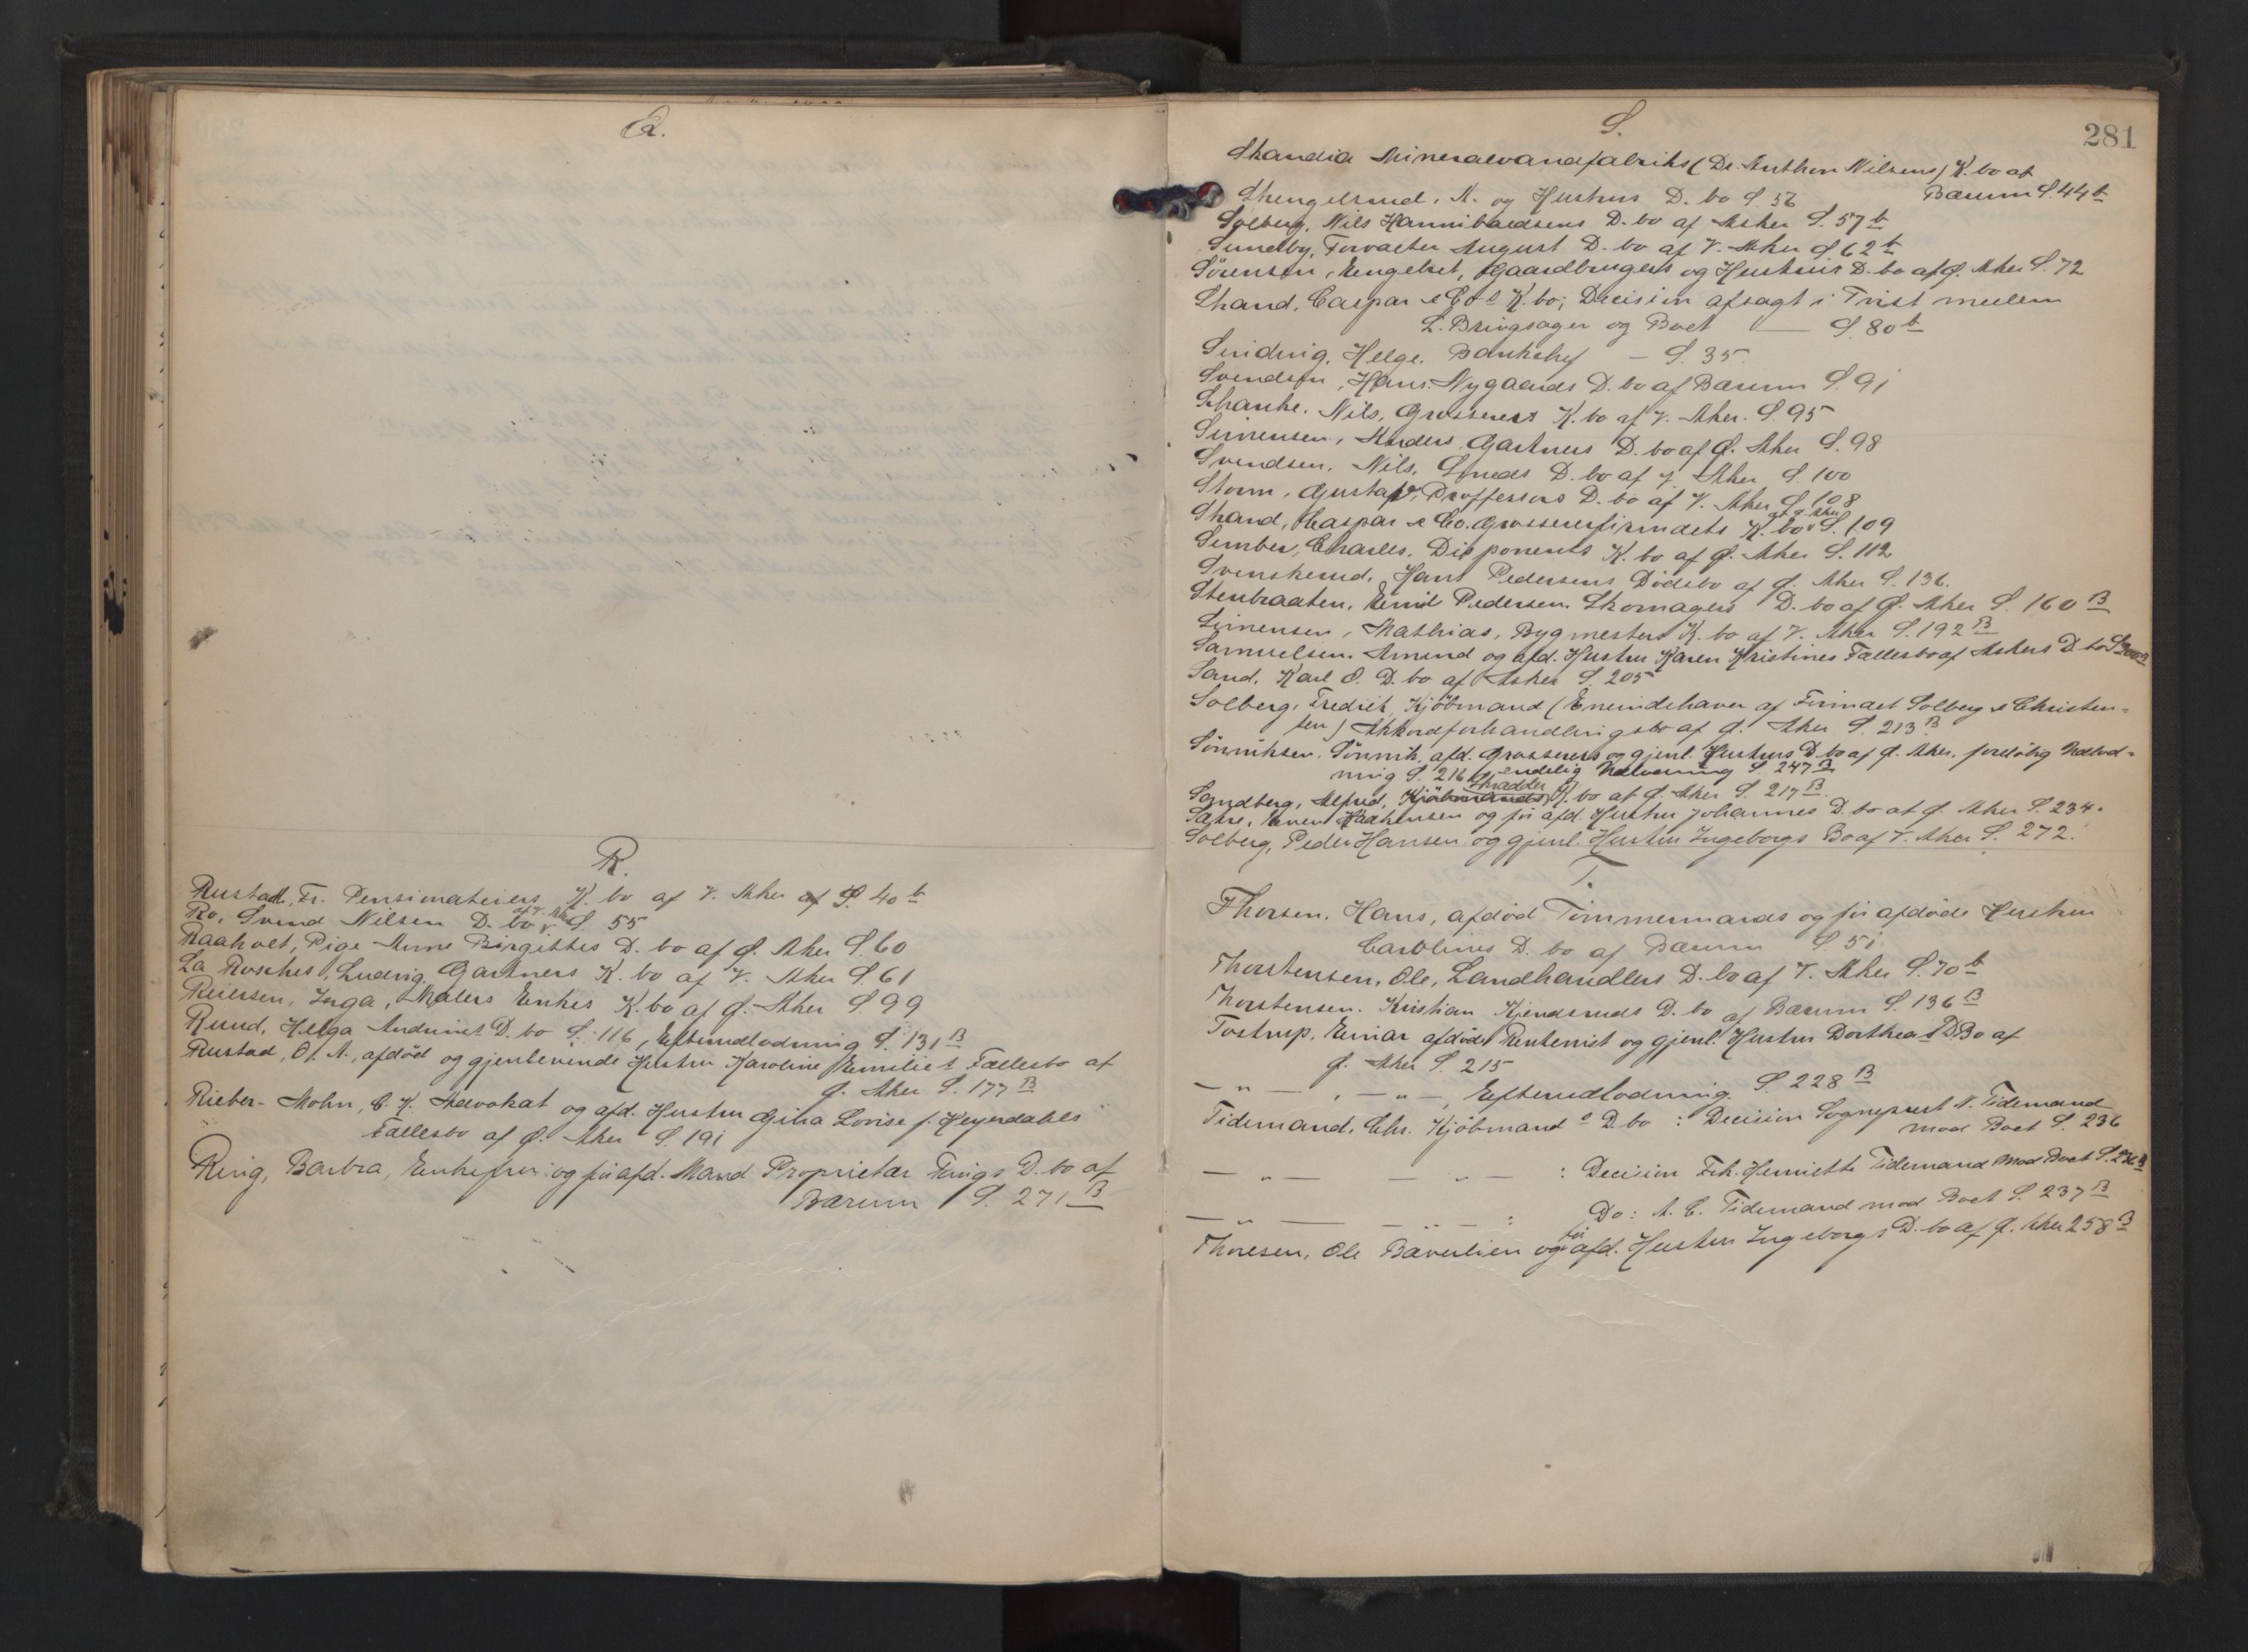 Q.
R.
Rustad, Fr. K. bo af V. Aker S. 40 b
af V. Aker
Ro, Svend Nilsen D. bo S. 55
Raaholt, Pige Anne Birgittes D. bo af Ø. Aker S. 60
La Rosches, Ludvig, Gartners K. bo af V. Aker S. 61
Reiersen, Inga, Malers Enkes K. bo af Ø. Aker S. 99
Ruud, Helga Andrines D. bo S. 116, Efterudlodning S. 131 B
Rustad, O. A., afdød og gjenlevende Hustru Karoline Emilies Fællesbo af
Ø. Aker S. 177 B
Rieber-Mohn, C. K. Advokat og afd. Hustru Gina Lovise f. Heyerdahls
Fællesbo af Ø. Aker S. 191
Ring, Barbra, Enkefru og før afd. Mand Proprietær Rings D. bo af
Bærum S. 271 B
281
S.
Skandia Mineralvandfabriks (Dr. Anthon Nilsens) K. bo af
Bærum S. 44 b
Skengelsrud, A. og Hustrus D. bo S. 56
Solberg, Nils Hannibaldsens D. bo af Asker S. 57 b
Sundby, Forvalter August D. bo af V. Aker S 62 b
Sörensen, Engelret, Gaardbrugers og Hustrus D. bo af Ø. Aker S. 72
Strand, Caspar & Co s K. bo; Decision afsagt i Tvist mellem
L. Bringsager og Boet — S. 80 b
Sinding, Helge, Bankchef — S. 35.
Svendsen, Hans Nygaards D. bo af Bærum S. 91
Schanke, Nils, Grosserers K. bo af V. Aker. S. 95
Simensen, Anders, Gartners D. bo af Ø. Aker S. 98
Svendsen, Nils, Smeds D. bo af V. Aker S. 100
Storm, Gustav, Proffessors D. bo af V. Aker S. 108
af Ø. Aker
Strand, Caspar & Co. Grossererfirmaets K. bo S. 109
Sember, Charles, Disponents K. bo af Ø. Aker S. 112
Svenskerud, Hans Pedersens Dødsbo af Ø. Aker S. 136.
Stenbraaten, Emil Pedersen, Skomagers D. bo af Ø. Aker S. 160 B
Simensen, Mathias, Bygmesters K. bo af V. Aker S. 192 B
Samuelsen, Amund og afd. Hustru Karen Kristines Fællesbo af Askers D. bo S 200 B
Sand, Karl O. D. bo af Asker S. 205
Solberg, Fredrik, Kjöbmand (Eneindehaver af Firmaet Solberg & Christen-
sen) Akkordforhandlingsbo af Ø. Aker S. 213 B
Sönniksen, Sönnik, afd. Grosserers og gjenl. Hustrus D. bo af Ø. Aker, foreløbig Udlod-
ning S. 216, endelig Udlodning S. 247 B
Skrædder
Sandberg, Alfred, Kjöbmands K. bo af Ø. Aker S. 217 B.
Sætre, Even Haakensen og før afd. Hustru Johannes D. bo af Ø. Aker S. 234.
Solberg, Peder Hansen og gjenl. Hustru Ingeborgs Bo af V. Aker S. 272.
T.
Thorsen, Hans, afdød Tömmermands og før afdøde Hustru
Carolines D. bo af Bærum S. 51
Thorstensen, Ole, Landhandlers D. bo af V. Aker S. 70 b
Thorstensen, Kristian Kjendsruds D. bo af Bærum S. 136 B
Tostrup, Einar afdøde Rentenist og gjenl. Hustru Dorthea s D Bo af
Ø. Aker S. 215
— " — , — " —, Efterudlodning. S. 228 B
Tidemand, Chr. Kjöbmand s D. bo : Decision Sogneprest N. Tidemand
mod Boet S. 236
— " — — " — : Decision Frk. Henriette Tidemand mod Boet S. 236 B
— " — — " — : Do: A. C. Tidemand mod Boet S. 237 B
før
Thoresen, Ole Bæverlien og afd. Hustru Ingeborgs D. bo af Ø. Aker 258 B